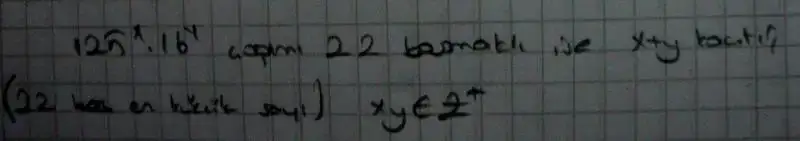 125ˣ.16ʸ çarpımı 22 basamaklı ise x+y kaçtır?
(22 bas en küçük sayı) x,y ∈ Z⁺